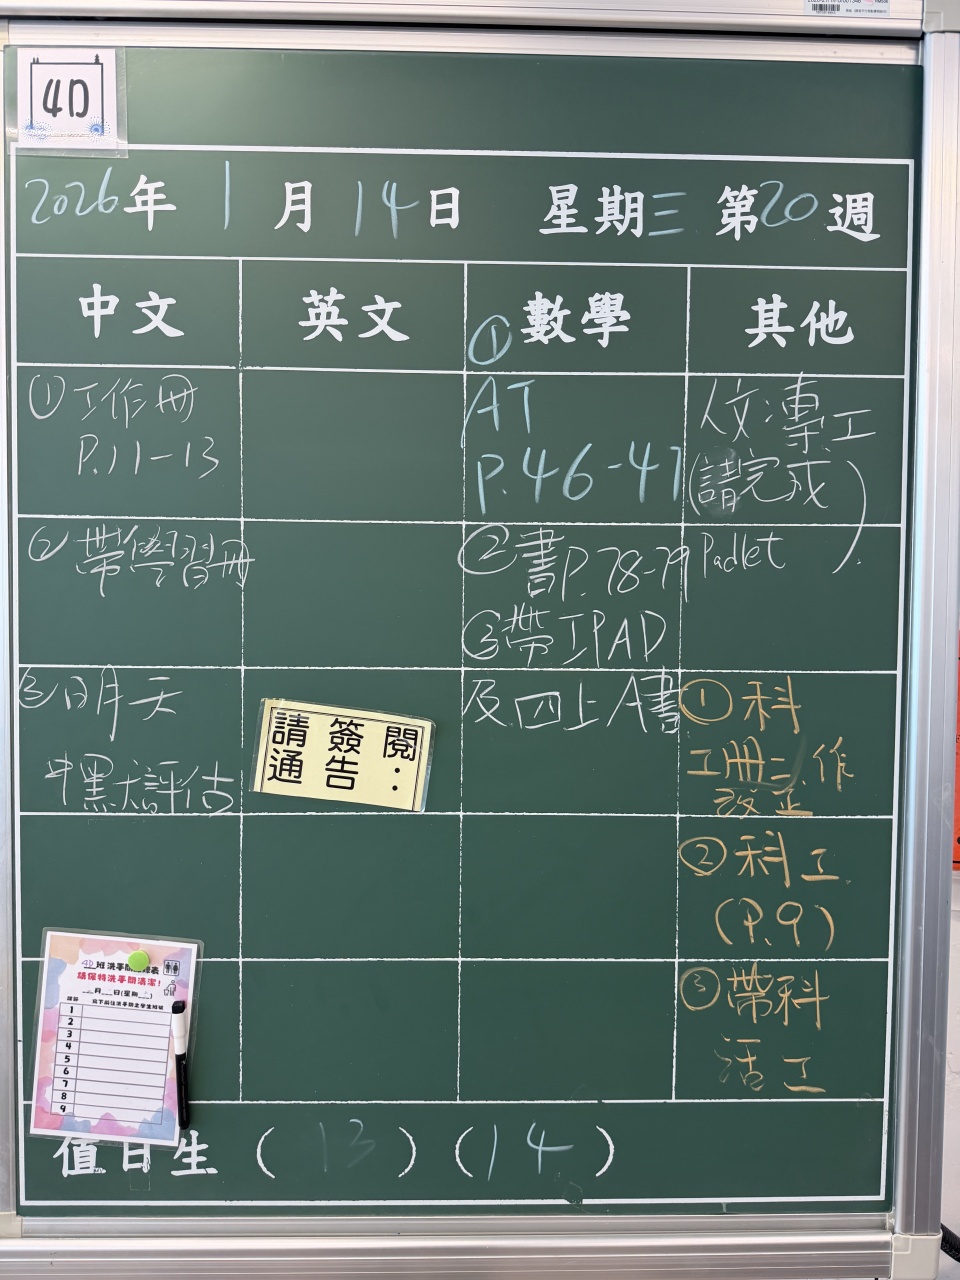 4D
2026年 1月 14日 星期三 第20週
中文 英文 數學 其他
①工作冊
P.11-13
② 帶學習冊
③明天
中默評估
請簽閱
通告：
①
AT
P.46-47
②書P.78-79
③帶IPAD
及四上A書
人文:專工
(請完成)
Padlet
①科
工冊三作
改正
②科工
(P.9)
③帶科
活工
4D班洗手間
請保持洗手間清潔!
月 日(星期 )
1
2
3
4
5
6
7
8
9
值日生 (13) (14)